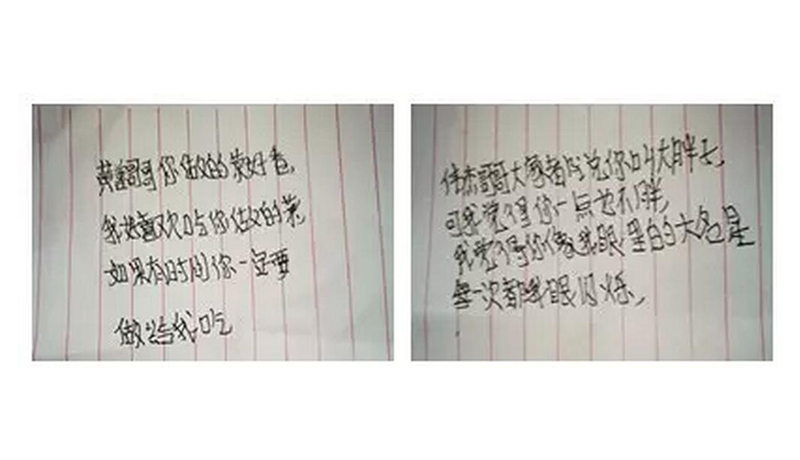 哥哥你做的菜好香,
我好喜欢吃你做的菜,
如果有时间你一定要
做给我吃
伟杰哥哥大家都说你叫大胖子,
可我觉得你一点也不胖,
我觉得你像我眼里的大
每一次都 眼闪烁,